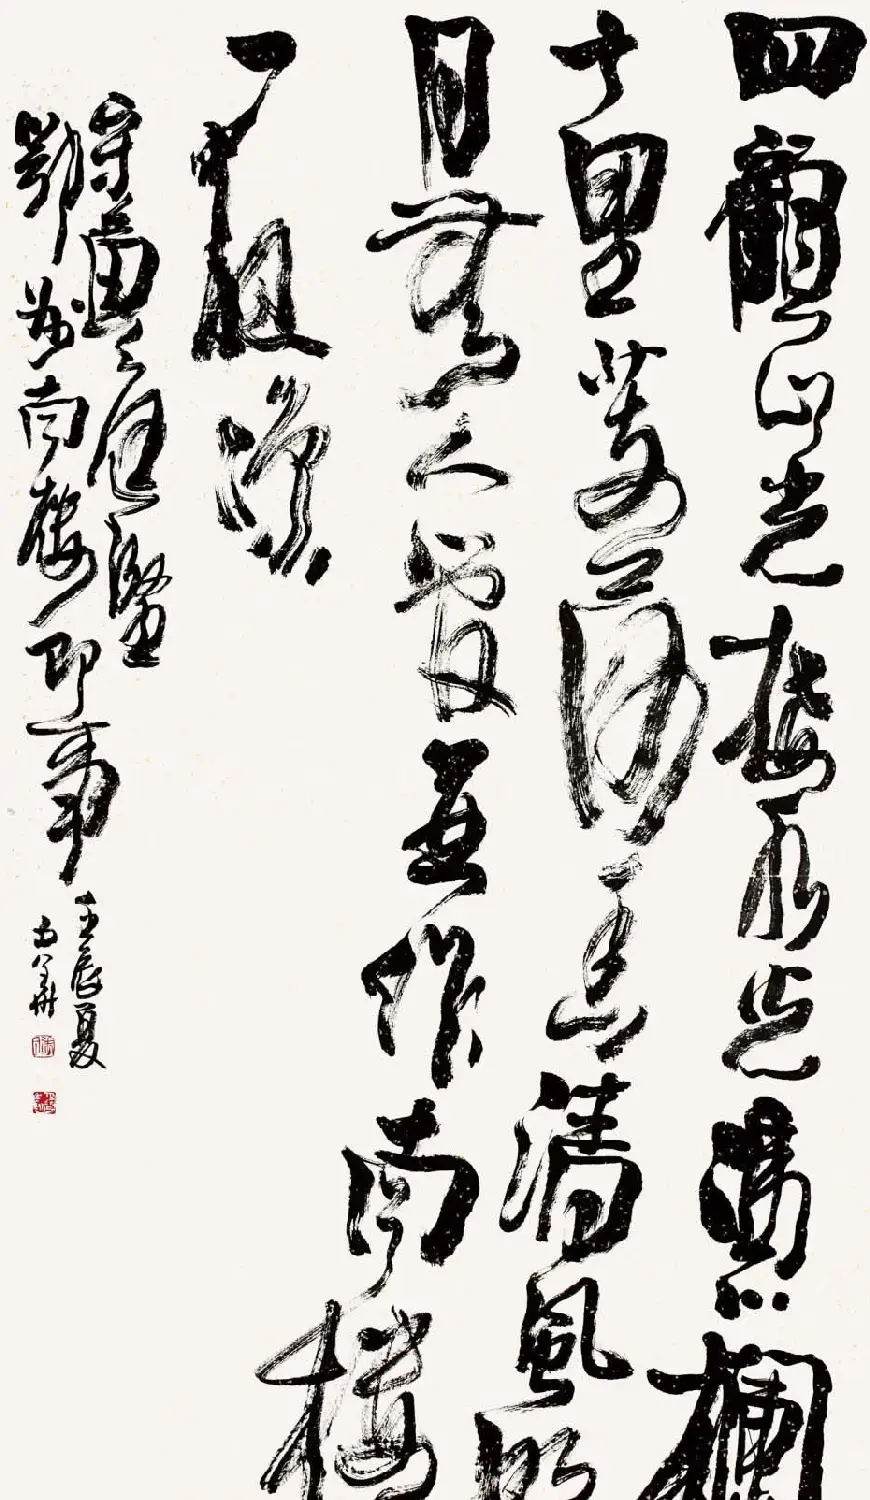 四顧山光接水光憑欄
十里芰荷香清風明
月無人管並作南樓
一味涼
黃庭堅
鄂州南樓即事
壬辰夏